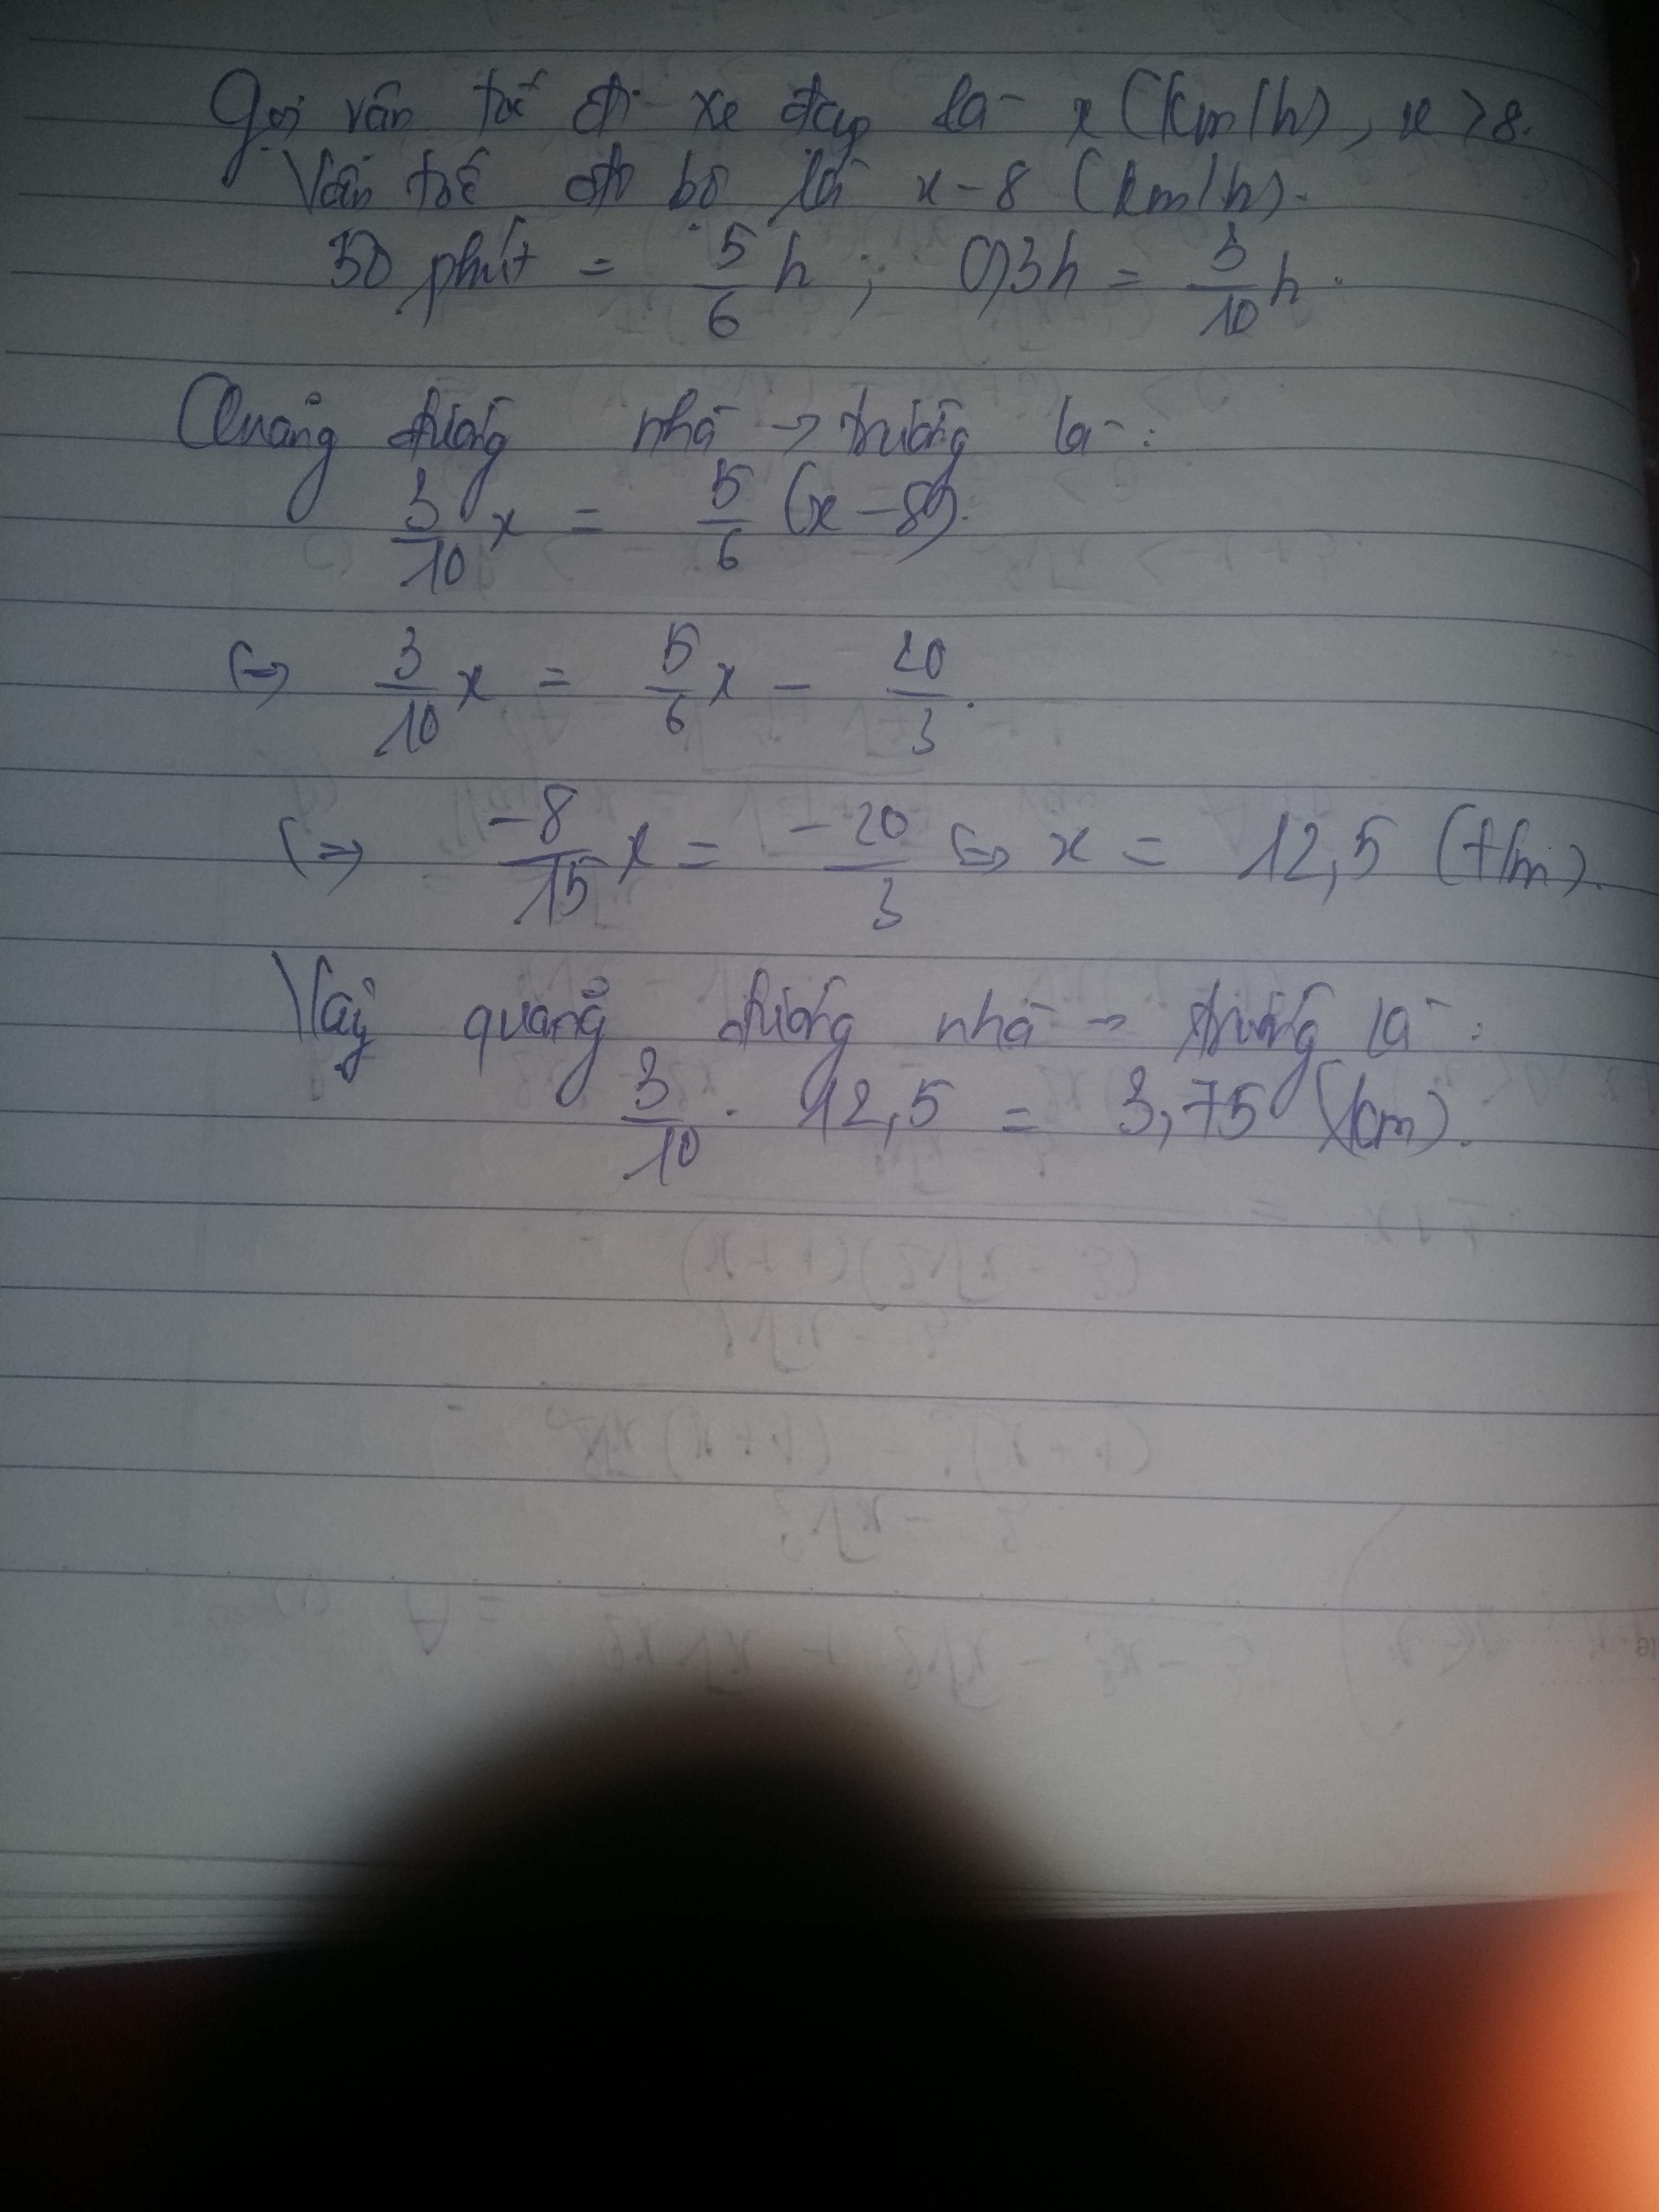 Gọi vận tốc đi xe đạp là x (km/h), x > 8.
Vận tốc đi bộ là x - 8 (km/h).
50 phút = 5/6 h ; 0,3h = 3/10 h.
Quãng đường nhà → trường là :
3/10 x = 5/6 (x - 8).
⇔ 3/10 x = 5/6 x - 20/3.
⇔ -8/15 x = -20/3 ⇔ x = 12,5 (t/m).
Vậy quãng đường nhà → trường là :
3/10 . 12,5 = 3,75 (km).